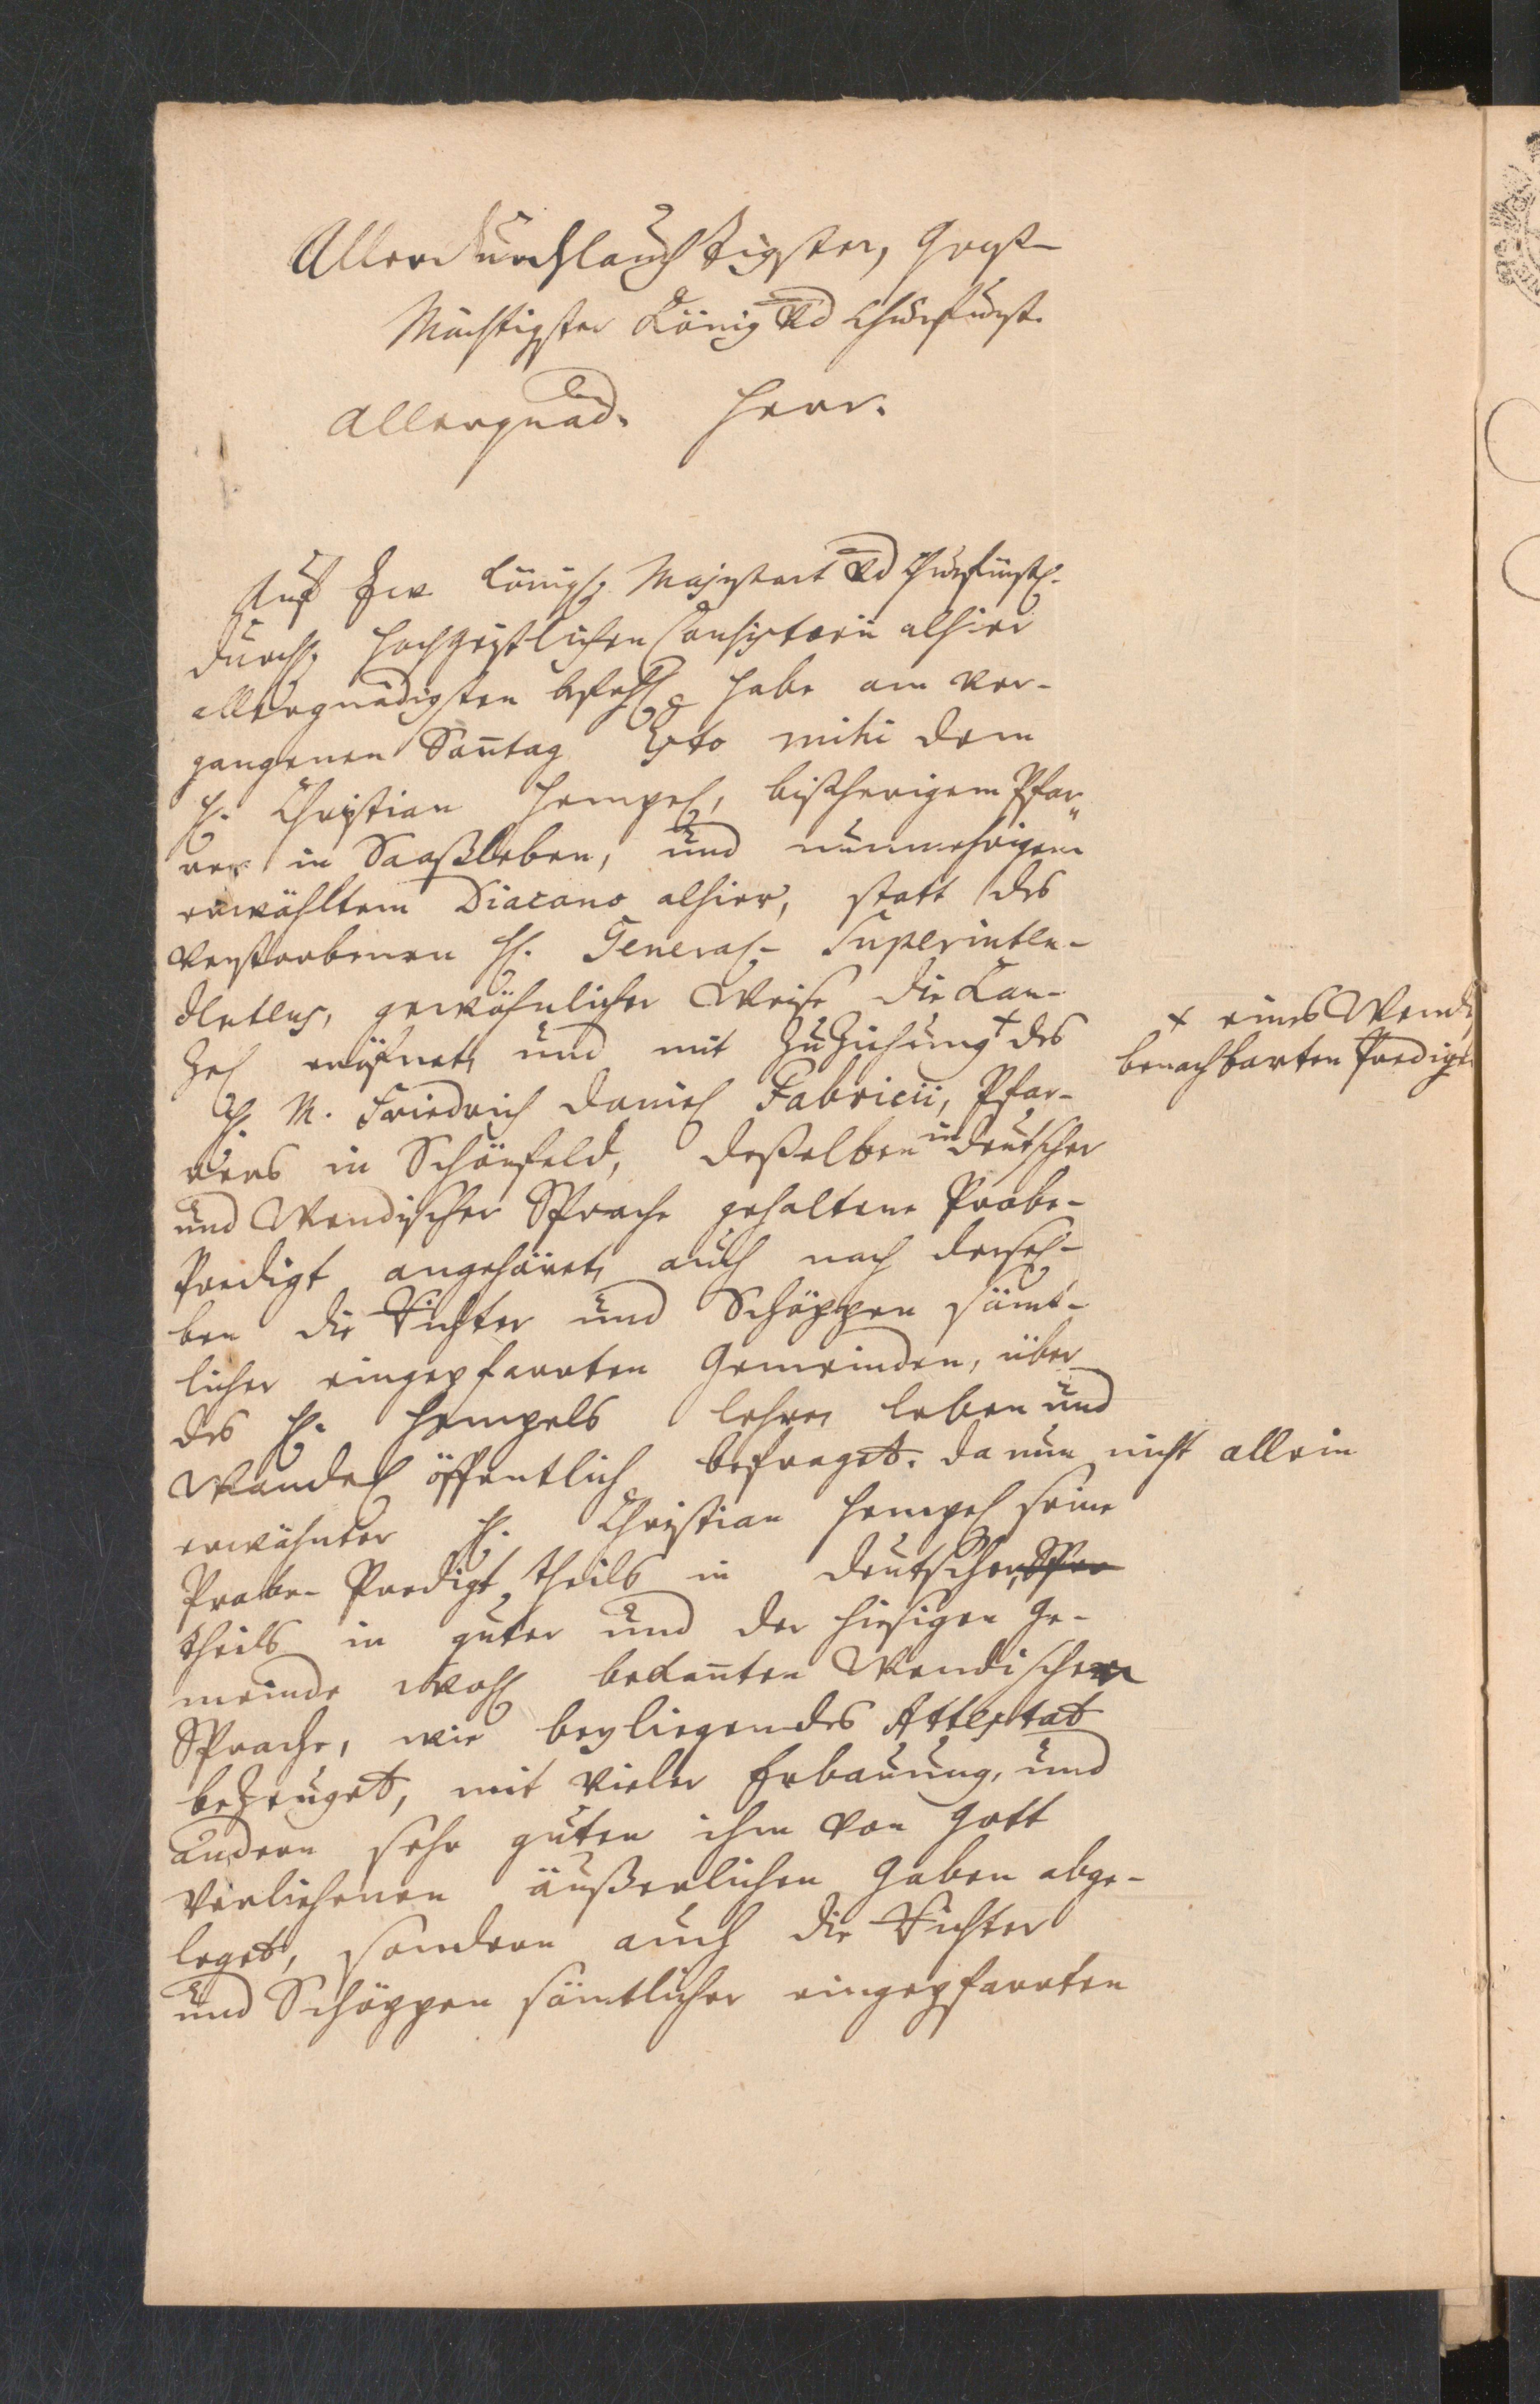 Allerdurchlauchtigster, Groß-
Mächtigster König und Churfürst.
Allergnäd. Herr.
Auf Ew. Königl. Majestaet und Churfürstl.
Durchl. Hochgeistlichen Consistorii alhier
allergnädigsten Befehl habe am ver-
gangenen Sontag Esto mihi dem
H. Christian Hempel, bißherigem Pfar-
rer in Saaßleben, und nunmehrigem
erwähltem Diacono alhier, statt des
verstorbenen H. General-Superinten-
dentens, gewöhnlicher Weise die Can-
zel eröfnet, und mit Zuziehung + des
+ eines Wend.
benachbarten Prediger
H. M. Friedrich Daniel Fabricii, Pfar-
rers in Schönfeld, deßelben in deutscher
und Wendischer Sprache gehaltene Probe-
Predigt angehöret, auch nach dersel-
ben die Richter und Schöppen sämt-
licher eingepfarrten Gemeinden, über
des H. Hempels Lehre, Leben und
Wandel öffentlich befraget. Da nun nicht allein
erwähnter H. Christian Hempel seine
Probe-Predigt theils in deutscher, Spra
theils in guter und der hiesigen Ge-
meinde wohl bekannten Wendischen
Sprache, wie beyliegendes Attestat
bezeuget, mit vieler Erbauung, und
andern sehr guten ihm von Gott
verliehenen äußerlichen Gaben abge-
leget, sondern auch die Richter
und Schöppen sämtlicher eingepfarrten